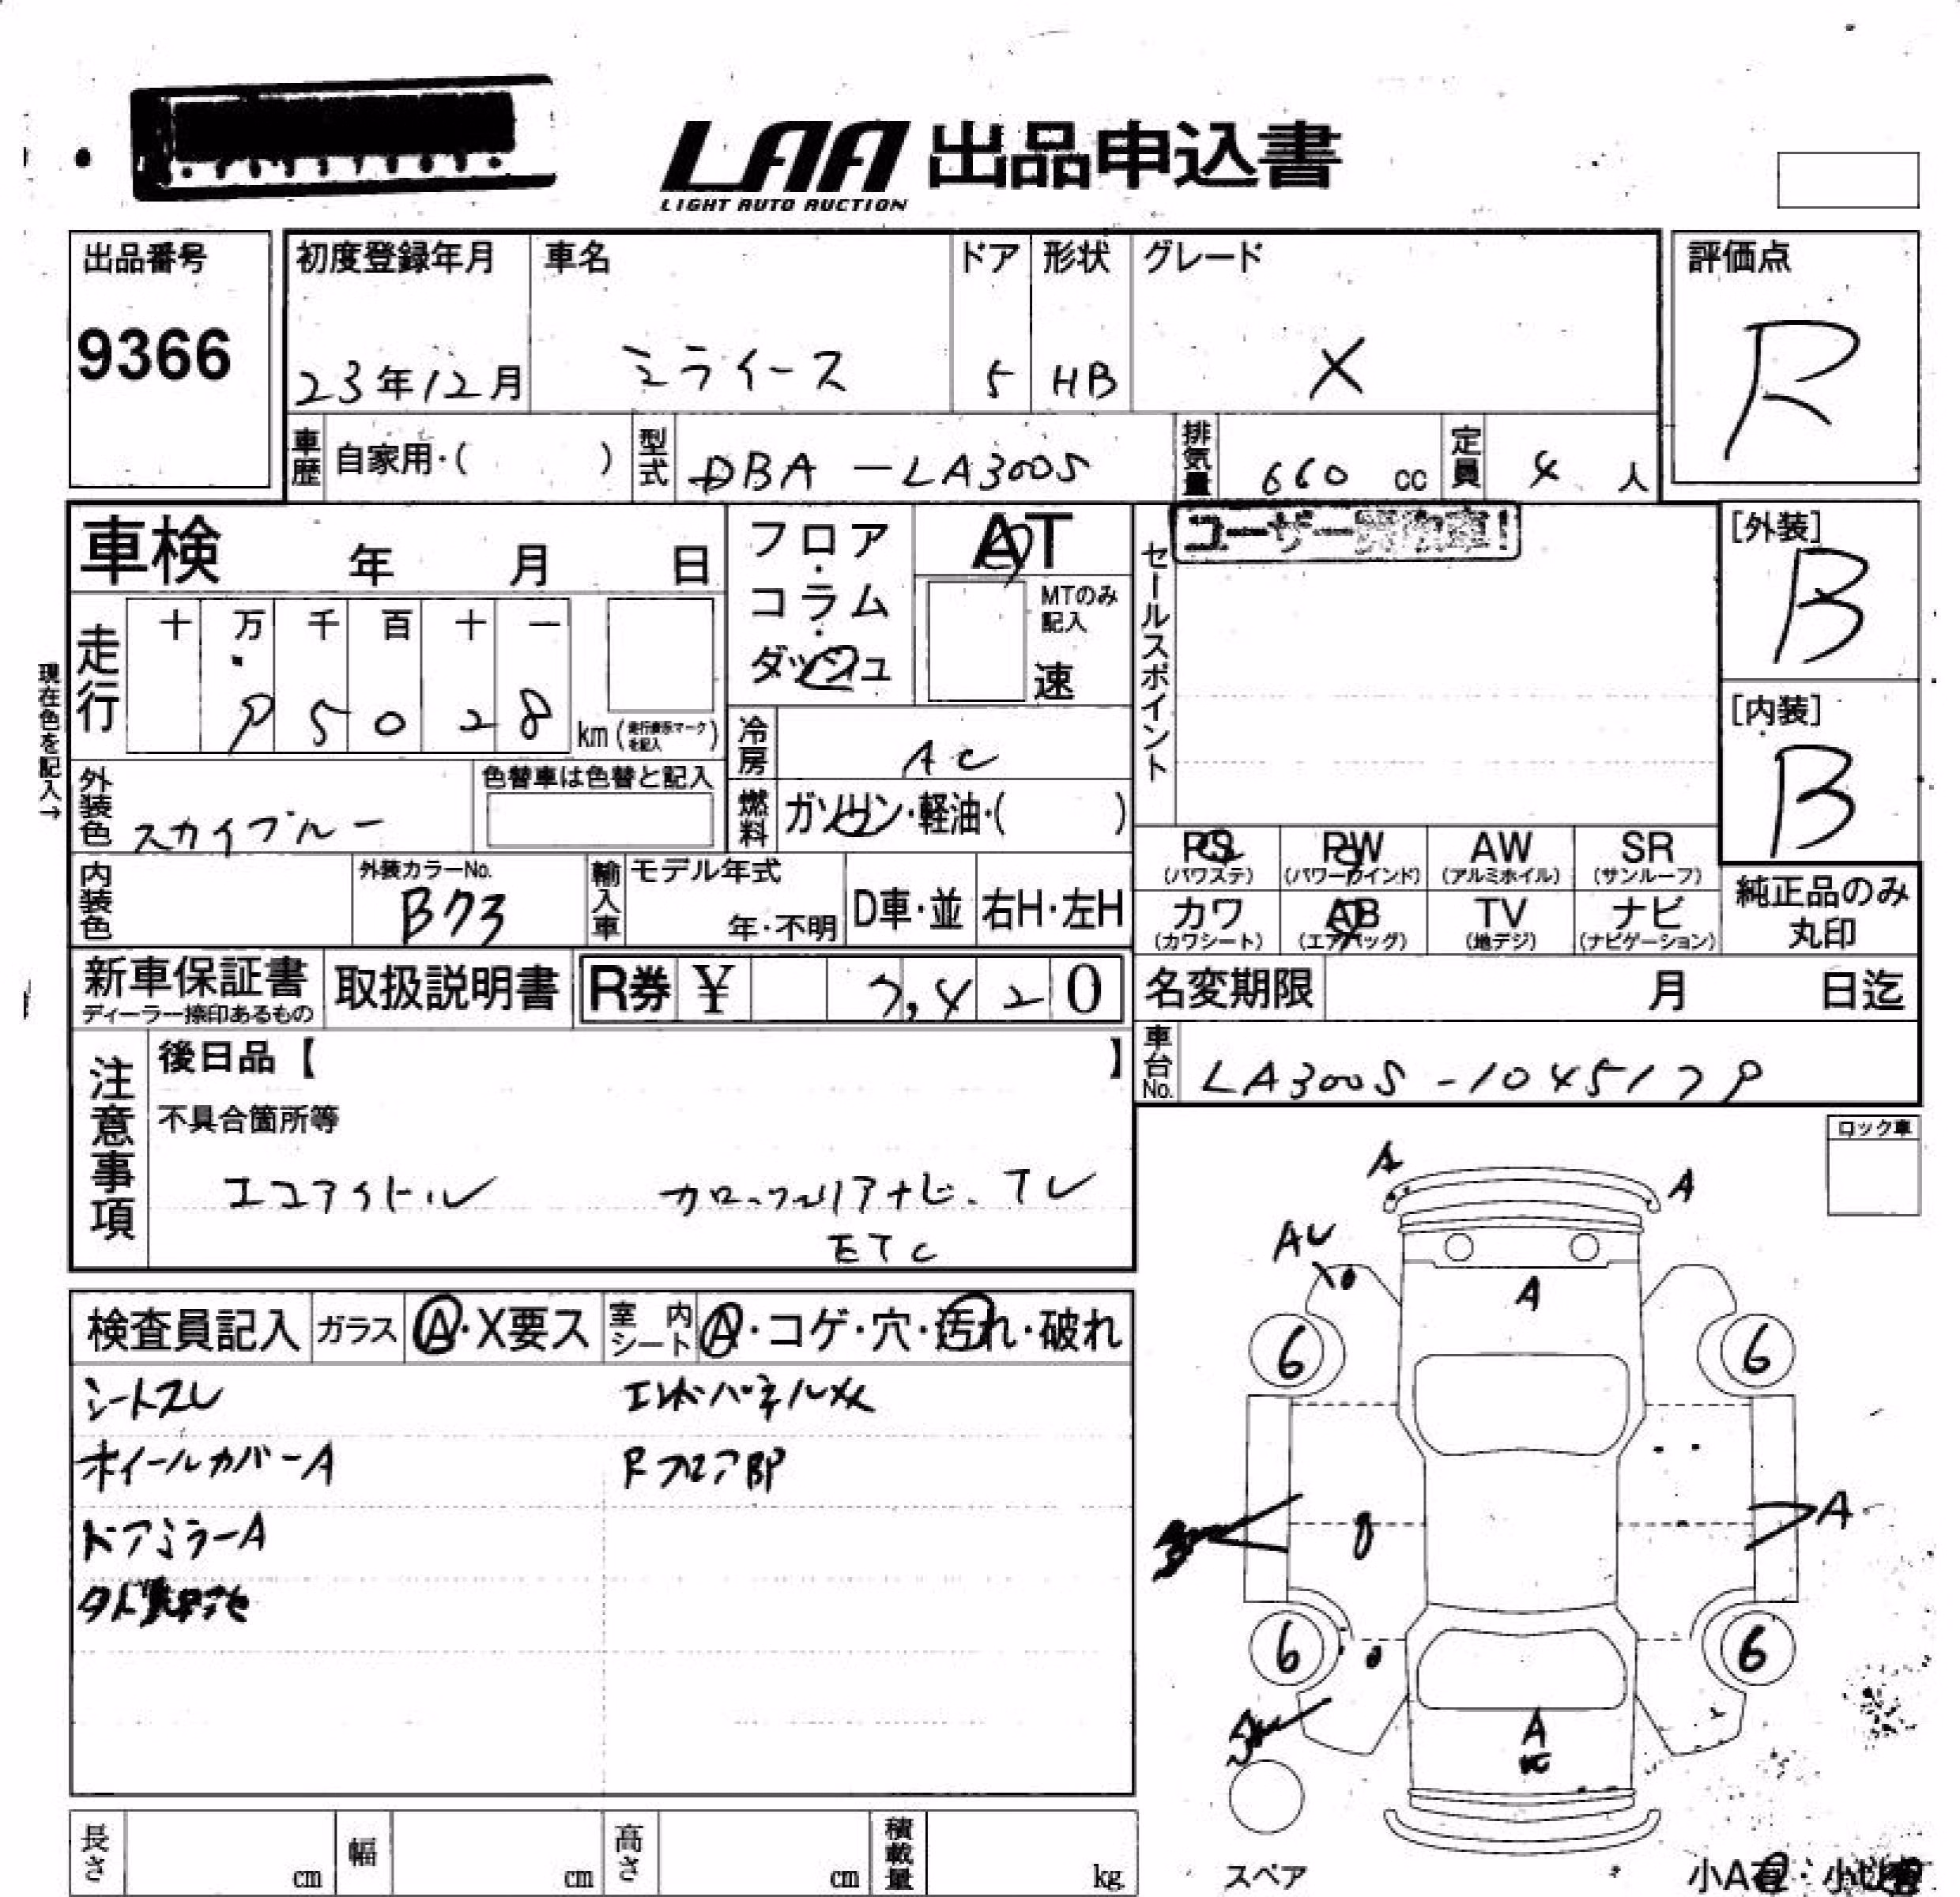 LAA 出品申込書
LIGHT AUTO AUCTION
出品番号 初度登録年月 車名 ドア 形状 グレード 評価点
9366 23年12月 ミライース 5 HB X R
車歴 自家用・( ) 型式 DBA-LA300S 排気量 660 cc 定員 4 人
車検 年 月 日 フロア・コラム・ダッシュ AT セールスポイント [外装]
B
MTのみ記入
速
現在色を記入→
走行 十 万 千 百 十 一
95028 km (走行表示マークを記入)
[内装]
B
冷房 AC
外装色 スカイブルー 色替車は色替と記入 燃料 ガソリン・軽油・( )
PS PW AW SR
(パワステ) (パワーウインド) (アルミホイル) (サンルーフ)
内装色 外装カラーNo. 輸入車 モデル年式 D車・並 右H・左H
B73 年・不明
カワ AB TV ナビ 純正品のみ
(カワシート) (エアバッグ) (地デジ) (ナビゲーション) 丸印
新車保証書 取扱説明書 R券 ¥ 7,420 名変期限 月 日迄
ディーラー捺印あるもの
車台No. LA300S-1045179
注意事項 後日品【 】
不具合箇所等
エコアイドル カロッツェリアナビ.TV
ETC
ロック車
検査員記入 ガラス A・X要ス 室内シート A・コゲ・穴・汚れ・破れ
シートスレ
ホイールカバーA Rフロア
ドアミラーA
A A
AU
A
6 6
A
6 6
A
長さ cm 幅 cm 高さ cm 積載量 kg
スペア 小A